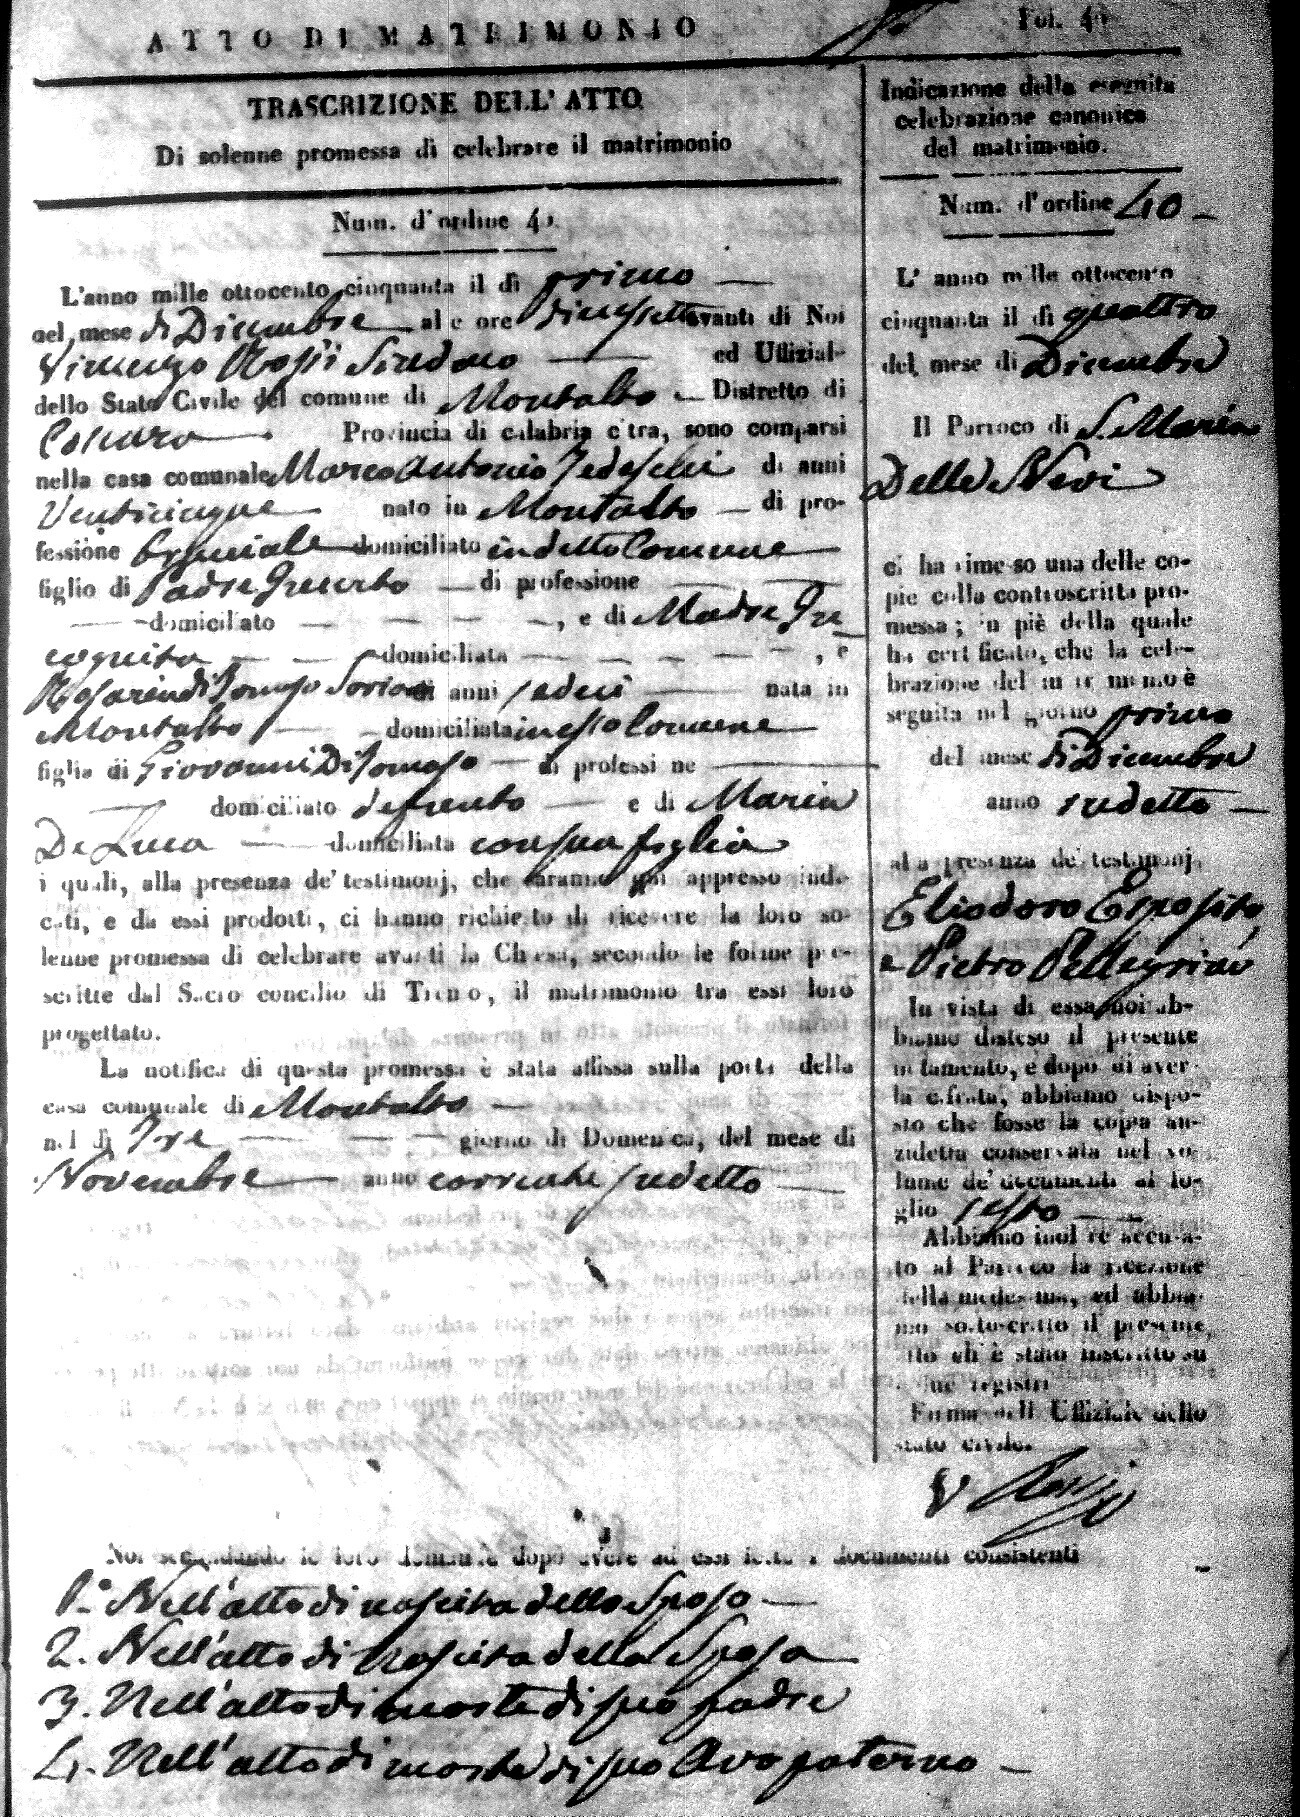 ATTO DI MATRIMONIO
Fol. 4
TRASCRIZIONE DELL'ATTO
Di solenne promessa di celebrare il matrimonio
Num. d'ordine 4
L'anno mille ottocento cinquanta il dì primo
nel mese di Dicembre alle ore diciassette avanti di Noi
Vincenzo Rossi Sindaco ed Uffizial
dello Stato Civile del comune di Montalto Distretto di
Cosenza Provincia di calabria citra, sono comparsi
nella casa comunale Marco Antonio Tedeschi di anni
Venticinque nato in Montalto di pro-
fessione domiciliato in detto Comune
figlio di Padre Incerto di professione
domiciliato , e di Madre In
cognita domiciliata , e
Rosarin di Tomaso Soriano di anni sedeci nata in
Montalto domiciliata in esso Comune
figlia di Giovanni Di Tomaso di professi ne
domiciliato defunto e di Maria
De Luca domiciliata con sua figlia
i quali, alla presenza de' testimonj, che saranno qui appresso indi-
cati, e da essi prodotti, ci hanno richiesto di ricevere la loro so-
lenne promessa di celebrare avanti la Chiesa, secondo le forme pre-
scritte dal Sacro concilio di Trento, il matrimonio tra essi loro
progettato.
La notifica di questa promessa è stata affissa sulla porta della
casa comunale di Montalto
nel dì Tre giorno di Domenica, del mese di
Novembre anno corrente sudetto
Noi secondando le loro domande dopo avere ad essi letto i documenti consistenti
1.° Nell'atto di nascita dello Sposo
2. Nell'atto di Nascita della Sposa
3. Nell'atto di morte di suo padre
4. Nell'atto di morte di suo Avo paterno
Indicazione della eseguita
celebrazione canonica
del matrimonio.
Num. d'ordine 40
L'anno mille ottocento
cinquanta il dì quattro
del mese di Dicembre
Il Parroco di S. Maria
Delle Nevi
ci ha rimesso una delle co-
pie colla controscritta pro-
messa; in piè della quale
ha certificato, che la cele-
brazione del matrimonio è
seguita nel giorno primo
del mese di Dicembre
anno sudetto
alla presenza de' testimonj
Eliodoro Esposito
e Pietro Pellegrini
In vista di essa, noi ab-
biamo disteso il presente
notamento, e dopo di aver
la cifrata, abbiamo dispo-
sto che fosse la copia an-
zidetta conservata nel vo-
lume de' documenti al fo-
glio sesto
Abbiamo inoltre accusa-
to al Parroco la ricezione
della medesima, ed abbia-
mo sottoscritto il presente
atto ch'è stato inscritto su
due registri
Firma dell'Uffiziale dello
stato civile.
V Rossi